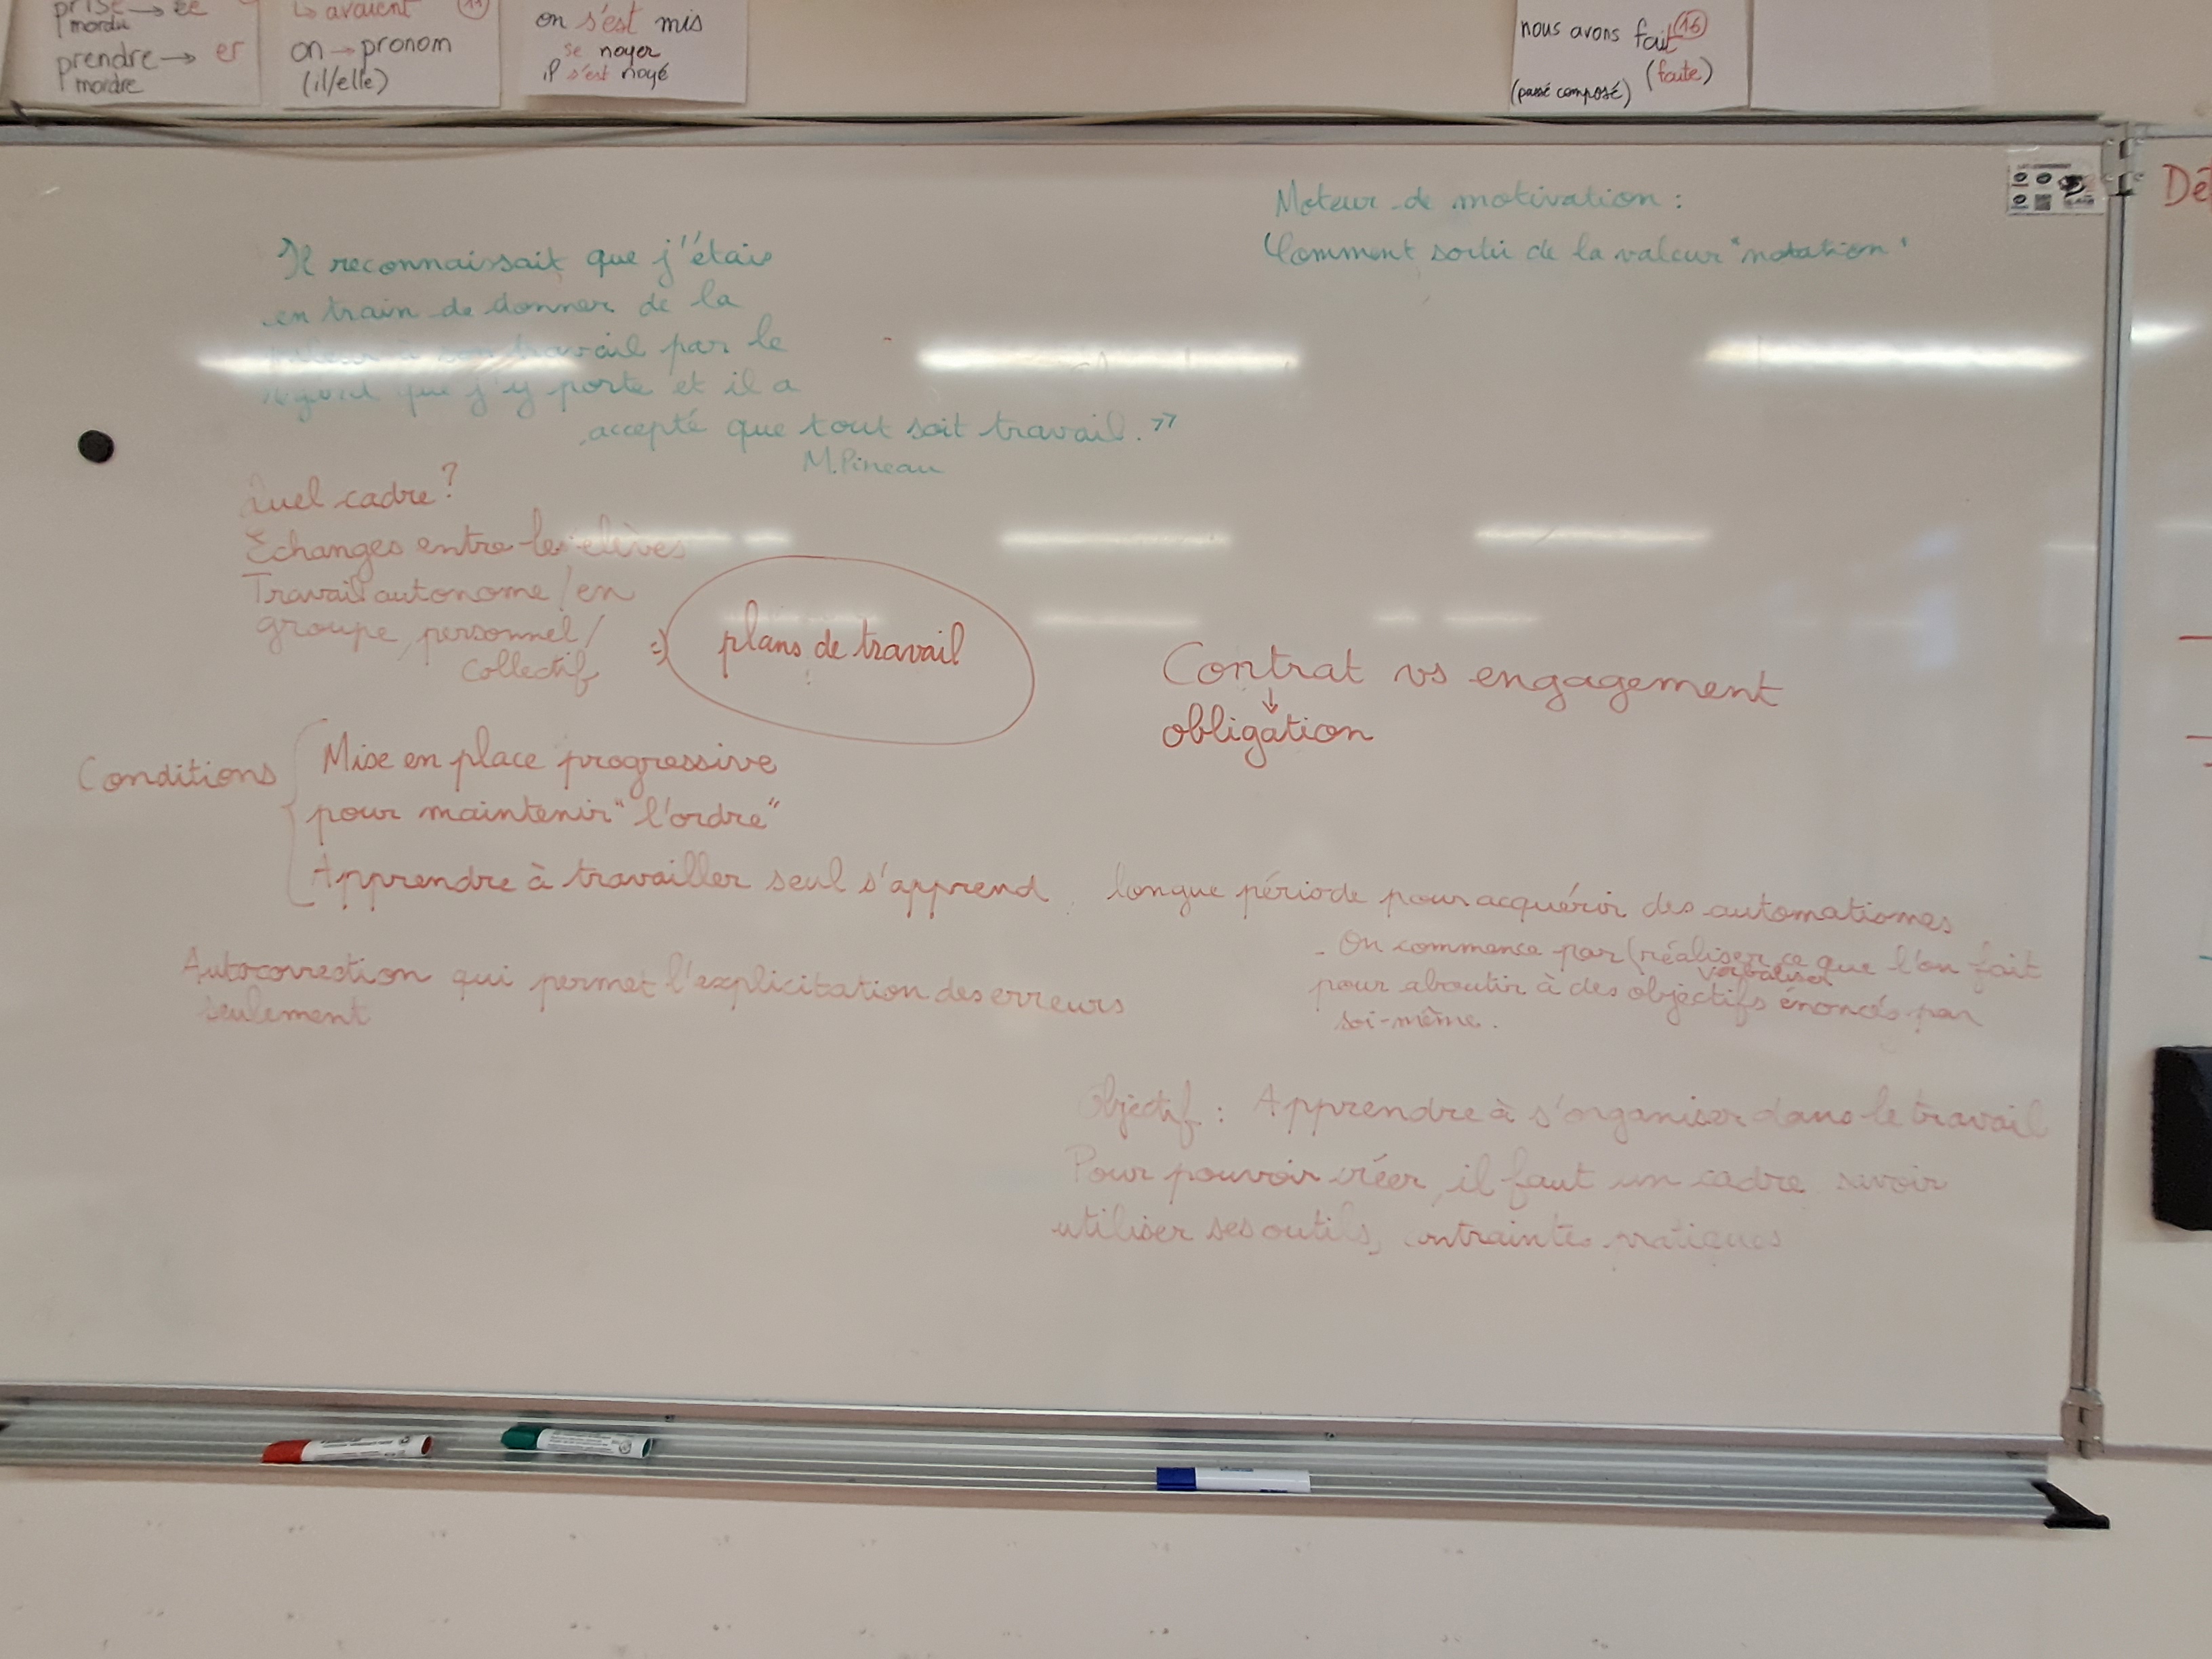 prise → ée
mordu
prendre → er
mordre
↳ avaient
11
on → pronom
(il/elle)
on s'est mis
se noyer
il s'est noyé
nous avons fait 16
(faite)
(passé composé)
Dé
Moteur de motivation :
Comment sortir de la valeur "notation"
Il reconnaissait que j'étais
en train de donner de la
valeur à son travail par le
regard que j'y porte et il a
accepté que tout soit travail. »
M. Pineau
Quel cadre ?
Echanges entre les élèves
Travail autonome / en
groupe, personnel /
collectif
=> plans de travail
Contrat vs engagement
↓
obligation
Conditions
Mise en place progressive
pour maintenir "l'ordre"
Apprendre à travailler seul s'apprend
longue période pour acquérir des automatismes
- On commence par (réaliser ce que l'on fait
verbaliser
pour aboutir à des objectifs énoncés par
soi-même.
Autocorrection qui permet l'explicitation des erreurs
seulement
Objectif : Apprendre à s'organiser dans le travail
Pour pouvoir créer, il faut un cadre savoir
utiliser ses outils, contraintes pratiques